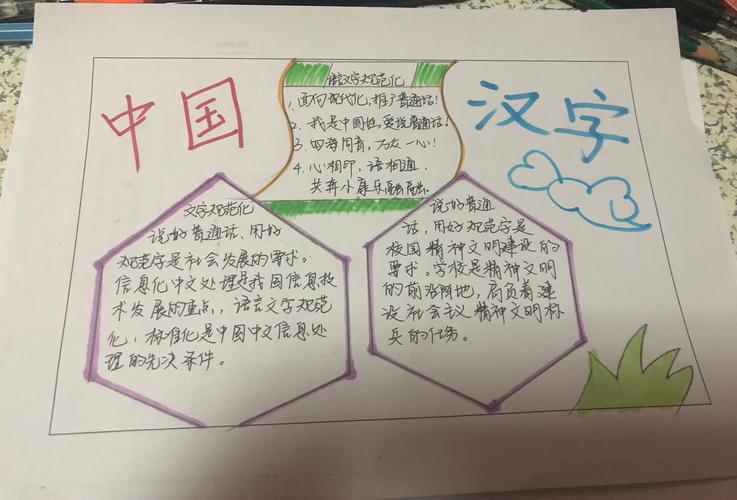 中国
汉字
语文字规范化
1. 面向现代化,推广普通话!
2. 我是中国娃,爱说普通话!
3. 四海同音,万众一心!
4. 心相印,语相通
共奔小康乐融融
文字规范化
说好普通话、用好
规范字是社会发展的要求。
信息化中文处理是我国信息技
术发展的重点,语言文字规范
化,标准化是中国中文信息处
理的先决条件。
说好普通
话,用好规范字是
校园精神文明建设的
要求。学校是精神文明
的前沿阵地,肩负着建
设社会主义精神文明标
兵的任务。